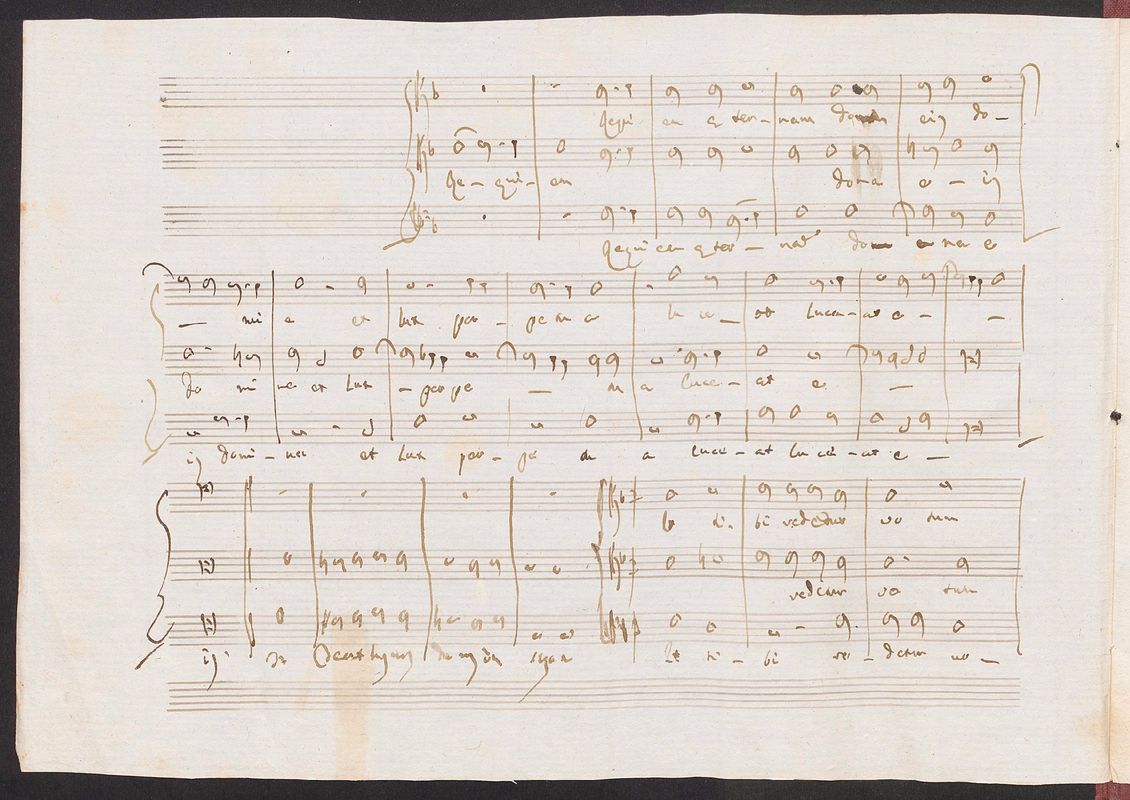 Requi em eter-nam dona eis do-
Re-qui-em dona e-is
Requiem eter-nam do na e
- mi e et lux per-petu a lu ce- at e- -
do mi ne et lux -perpe - tu a luce-at e -
is domi-ne et lux per-pe tu a luce-at lu ce-at e -
ti- bi redetur vo tum
redetur vo tum
is te decet hymnus Deus in syon Et ti-bi re-detur vo-